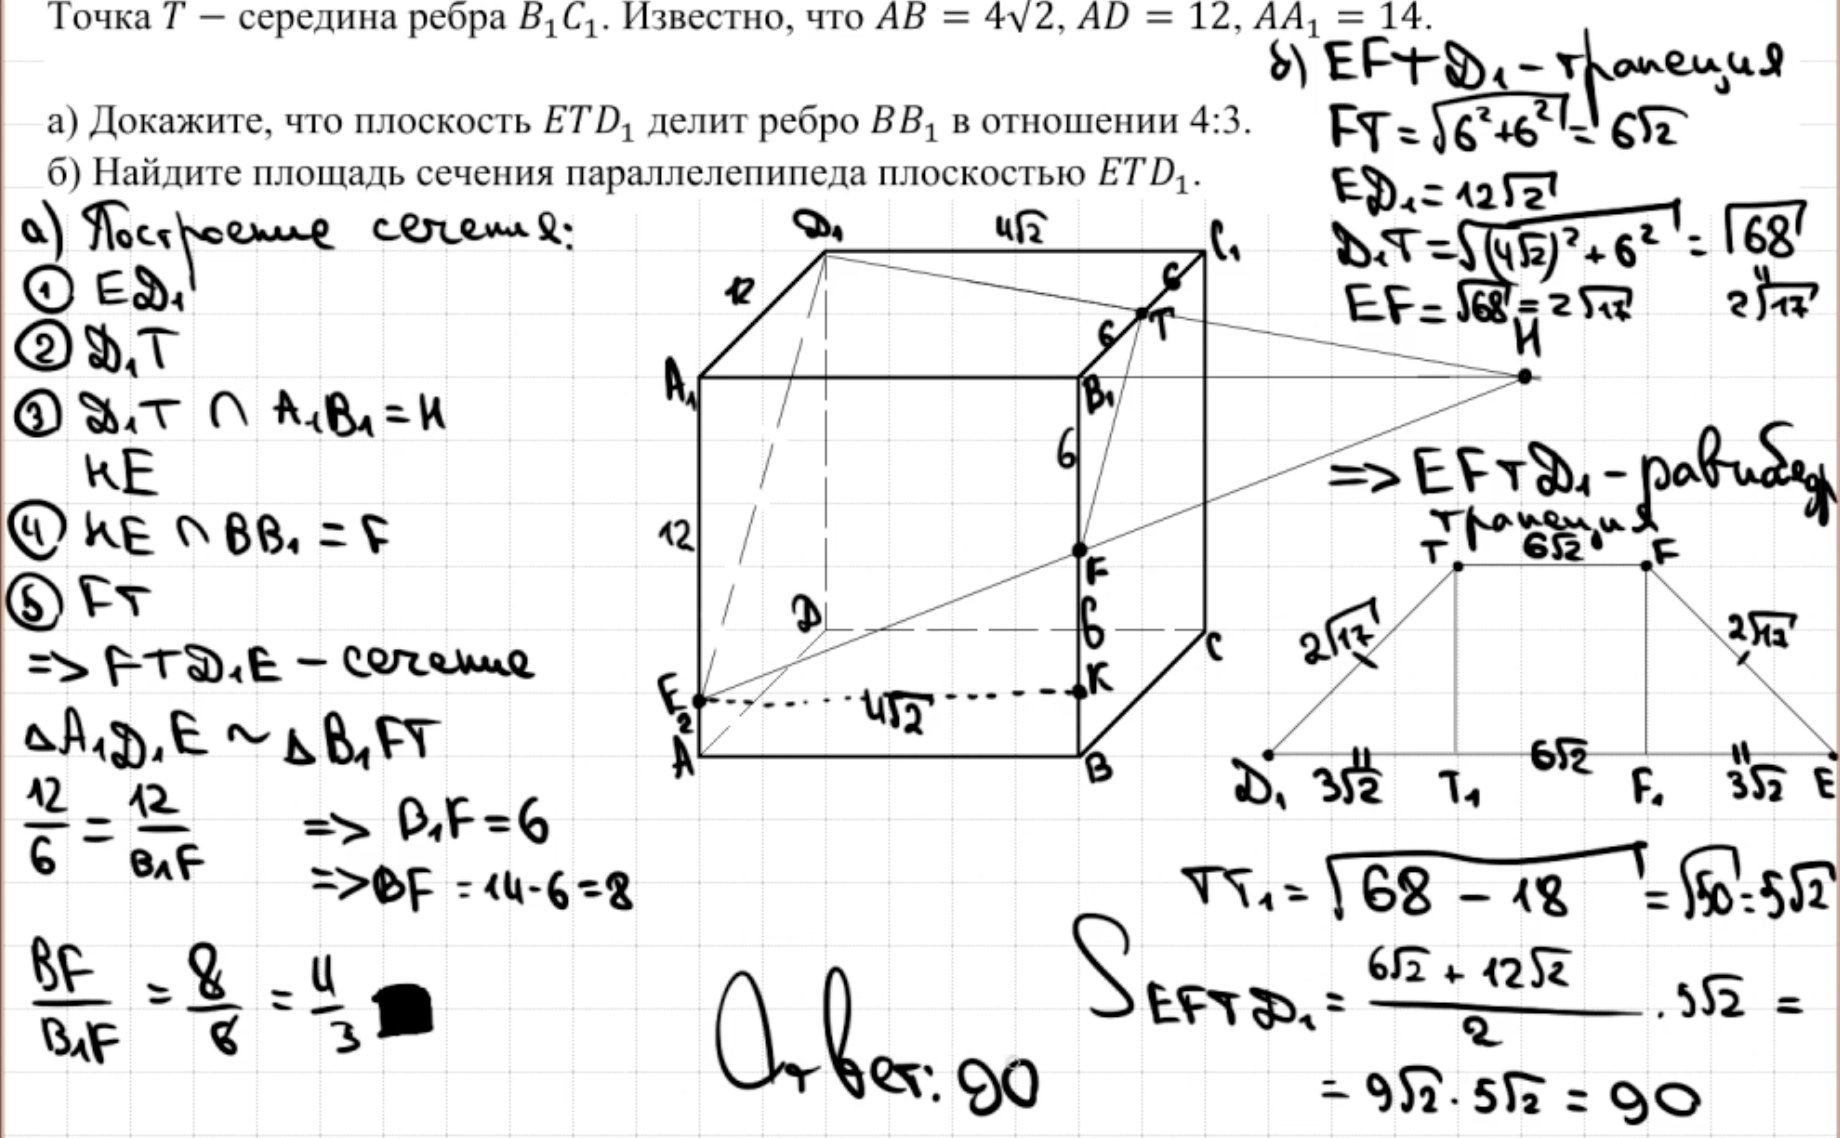 Точка T − середина ребра B₁C₁. Известно, что AB = 4√2, AD = 12, AA₁ = 14.
а) Докажите, что плоскость ETD₁ делит ребро BB₁ в отношении 4:3.
б) Найдите площадь сечения параллелепипеда плоскостью ETD₁.
а) Построение сечения:
① ED₁
② D₁T
③ D₁T ∩ A₁B₁ = H
HE
④ HE ∩ BB₁ = F
⑤ FT
=> FTD₁E – сечение
△A₁D₁E ~ △B₁FT
12/6 = 12/B₁F => B₁F = 6
=> BF = 14-6 = 8
BF/B₁F = 8/6 = 4/3
D₁ 4√2 C₁
12 6
6 T
A₁ B₁ H
6
12
F
D 6
C
E K
2 4√2
A B
б) EFTD₁ – трапеция
FT = √6²+6² = 6√2
ED₁ = 12√2
D₁T = √(4√2)²+6² = √68
EF = √68 = 2√17 2√17
=> EFTD₁ – равнобедр
трапеция
T 6√2 F
2√17 2√17
D₁ 3√2 T₁ 6√2 F₁ 3√2 E
TT₁ = √68 – 18 = √50 = 5√2
S EFTD₁ = (6√2 + 12√2)/2 · 5√2 =
= 9√2 · 5√2 = 90
Ответ: 90